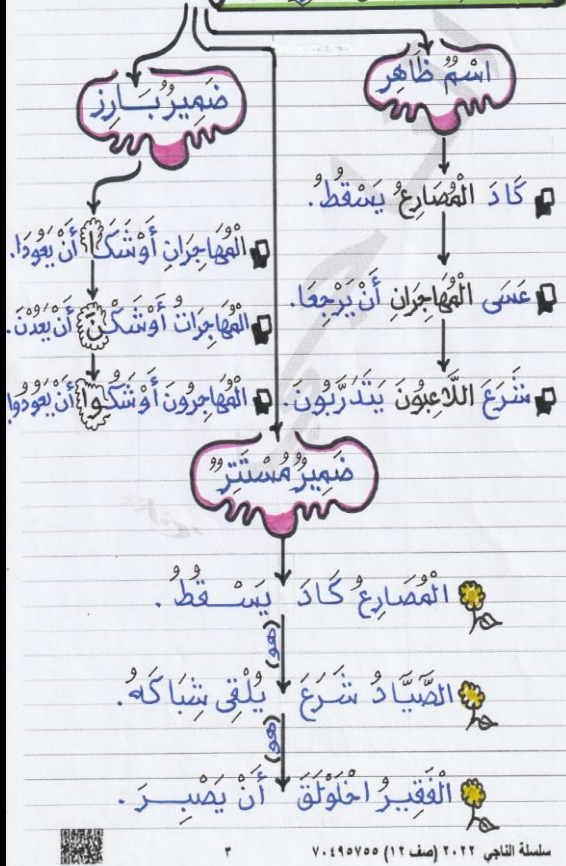 اسْمٌ ظَاهِرٌ
كَادَ الْمُصَارِعُ يَسْقُطُ.
عَسَى الْمُهَاجِرَانِ أَنْ يَرْجِعَا.
شَرَعَ اللَّاعِبُونَ يَتَدَرَّبُونَ.
ضَمِيرٌ بَارِزٌ
الْمُهَاجِرَانِ أَوْشَكَا أَنْ يَعُودَا.
الْمُهَاجِرَاتُ أَوْشَكْنَ أَنْ يَعُدْنَ.
الْمُهَاجِرُونَ أَوْشَكُوا أَنْ يَعُودُوا
ضَمِيرٌ مُسْتَتِرٌ
الْمُصَارِعُ كَادَ يَسْقُطُ.
(هو)
الصَّيَّادُ شَرَعَ يُلْقِي شِبَاكَهُ.
(هو)
الْفَقِيرُ اخْلَوْلَقَ أَنْ يَصْبِرَ.
سلسلة الناجي ٢٠٢٢ (صف ١٢) ٧٠٤٩٥٧٥٥
٣